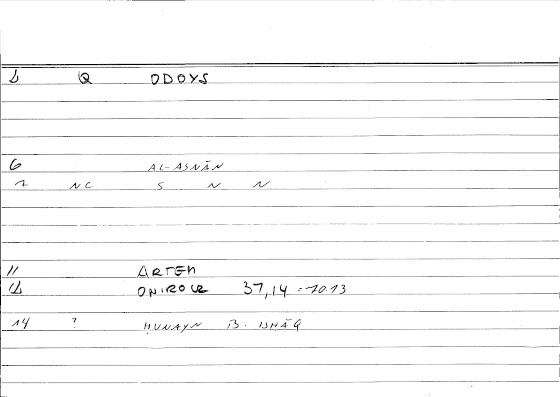 Q ODOYS
6 AL-ASNĀN
2 NC S N N
11 ARTEM
ONIROCR 37,14 = 10.13
14 ? ḤUNAYN B. ISḤĀQ